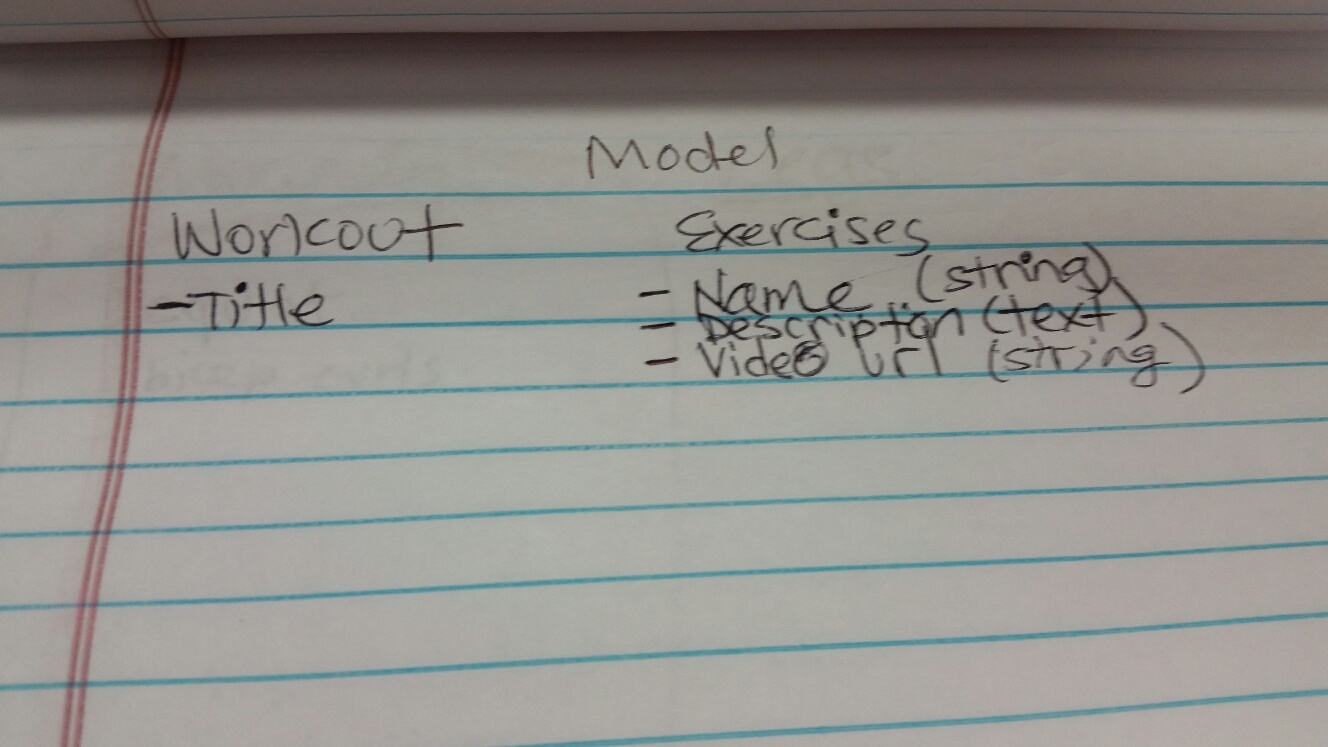 Model
Workout
- Title
Exercises
- Name (string)
- Description (text)
- Video Url (string)